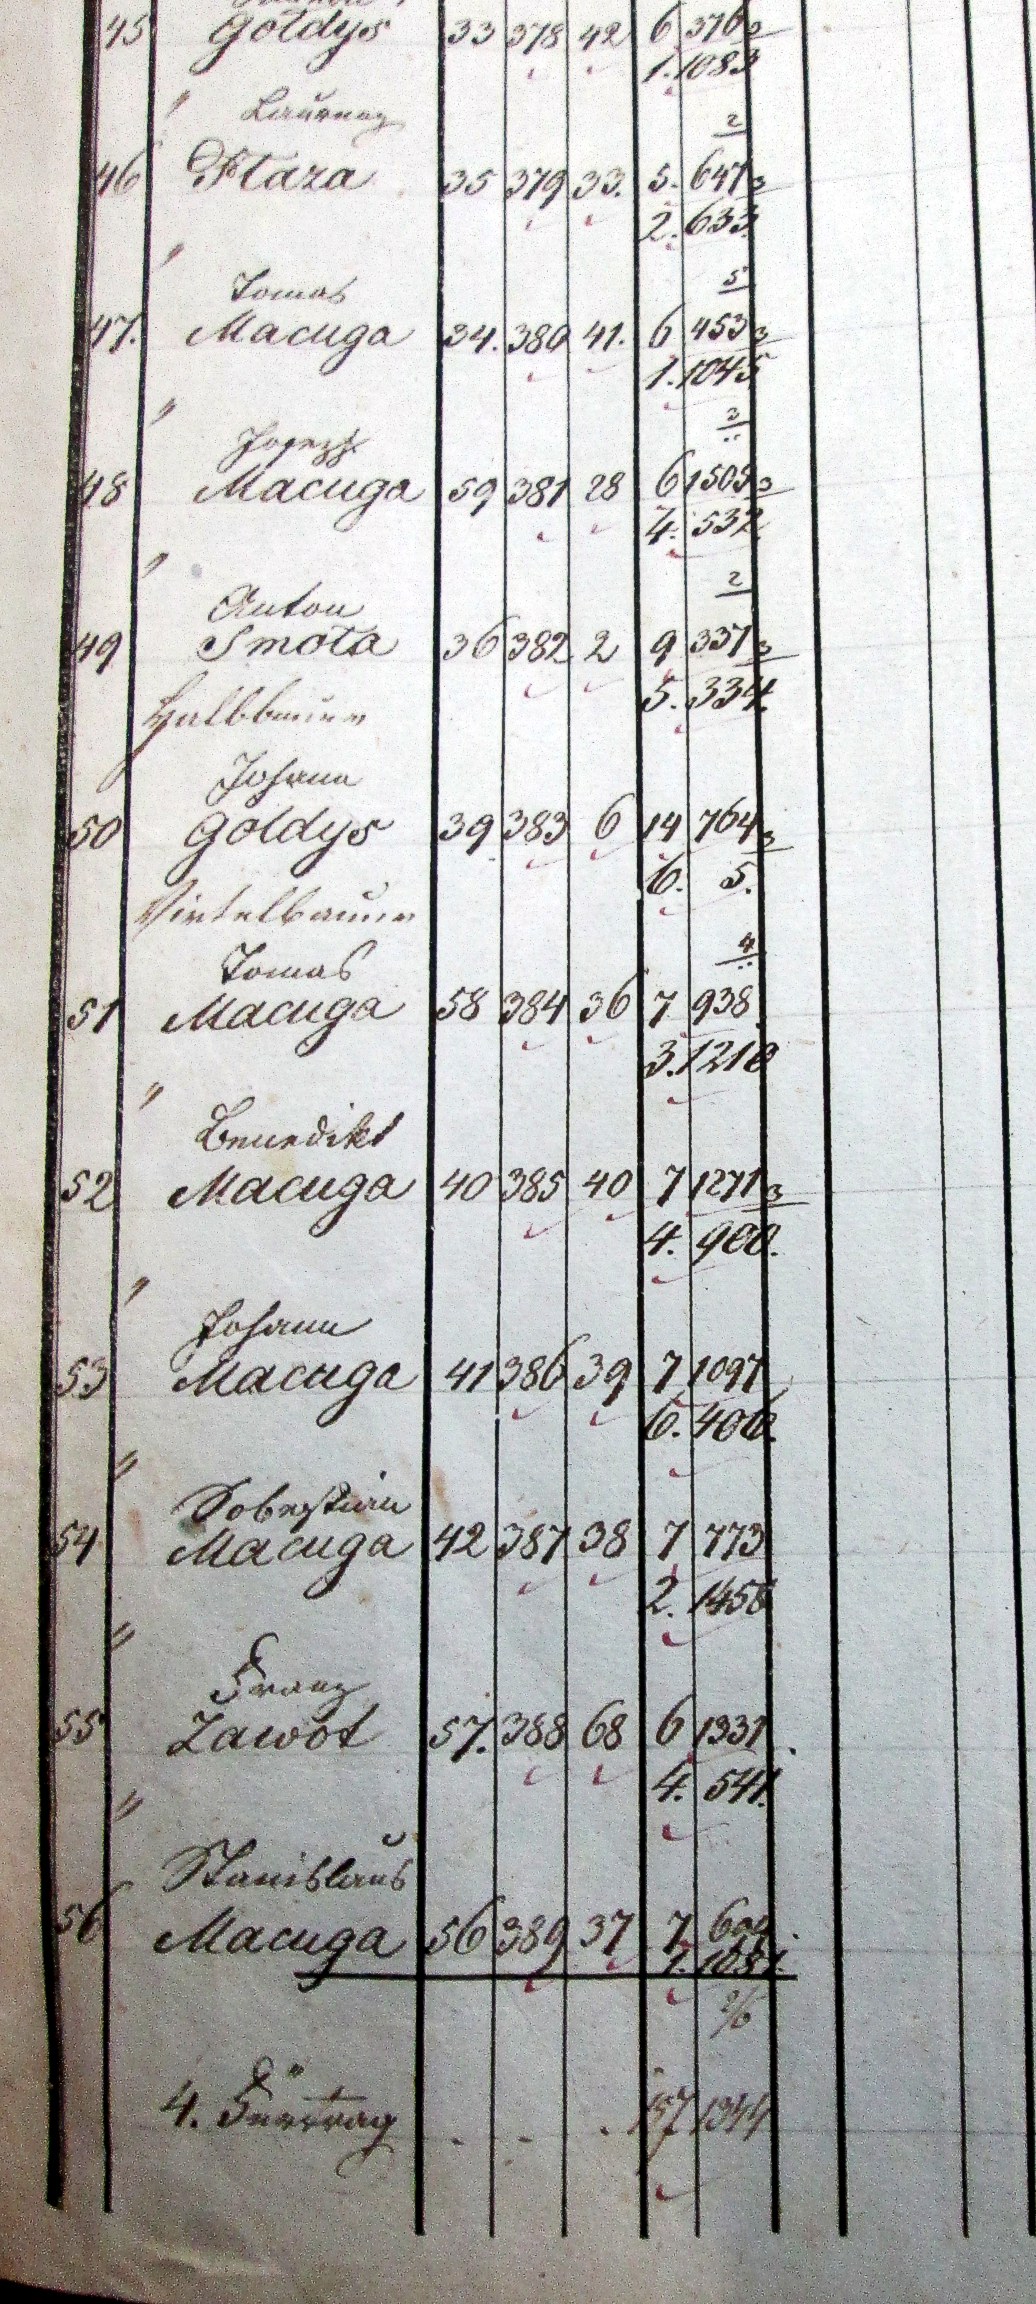 45 Gołdys 33 378 42 6 376 3
1. 1083
" Laurenz 2
46 Flaza 35 379 33. 5. 647 3
2. 633
" Tomas 5
47. Macuga 34. 380 41. 6 453 3
1. 1045
" Joseph 2
48 Macuga 59 381 28 6 1505 3
4. 532
" Anton 2
49 Smota 36 382 2 9 337 3
5. 334.
Halbbauer
Johann
50 Gołdys 39 383 6 14 764 3
6. 5.
Virtelbauer
Tomas 4
51 Macuga 58 384 36 7 938
3. 1210
" Benedikt
52 Macuga 40 385 40 7 1271 3
4. 900.
" Johann
53 Macuga 41 386 39 7 1097
6. 406.
" Sobestian
54 Macuga 42 387 38 7 773
2. 1450
" Franz
55 Zawoł 57. 388 68 6 1331
4. 541.
" Stanislaus
56 Macuga 56 389 37 7
1.
4. Fürtrag . . . 157 1344